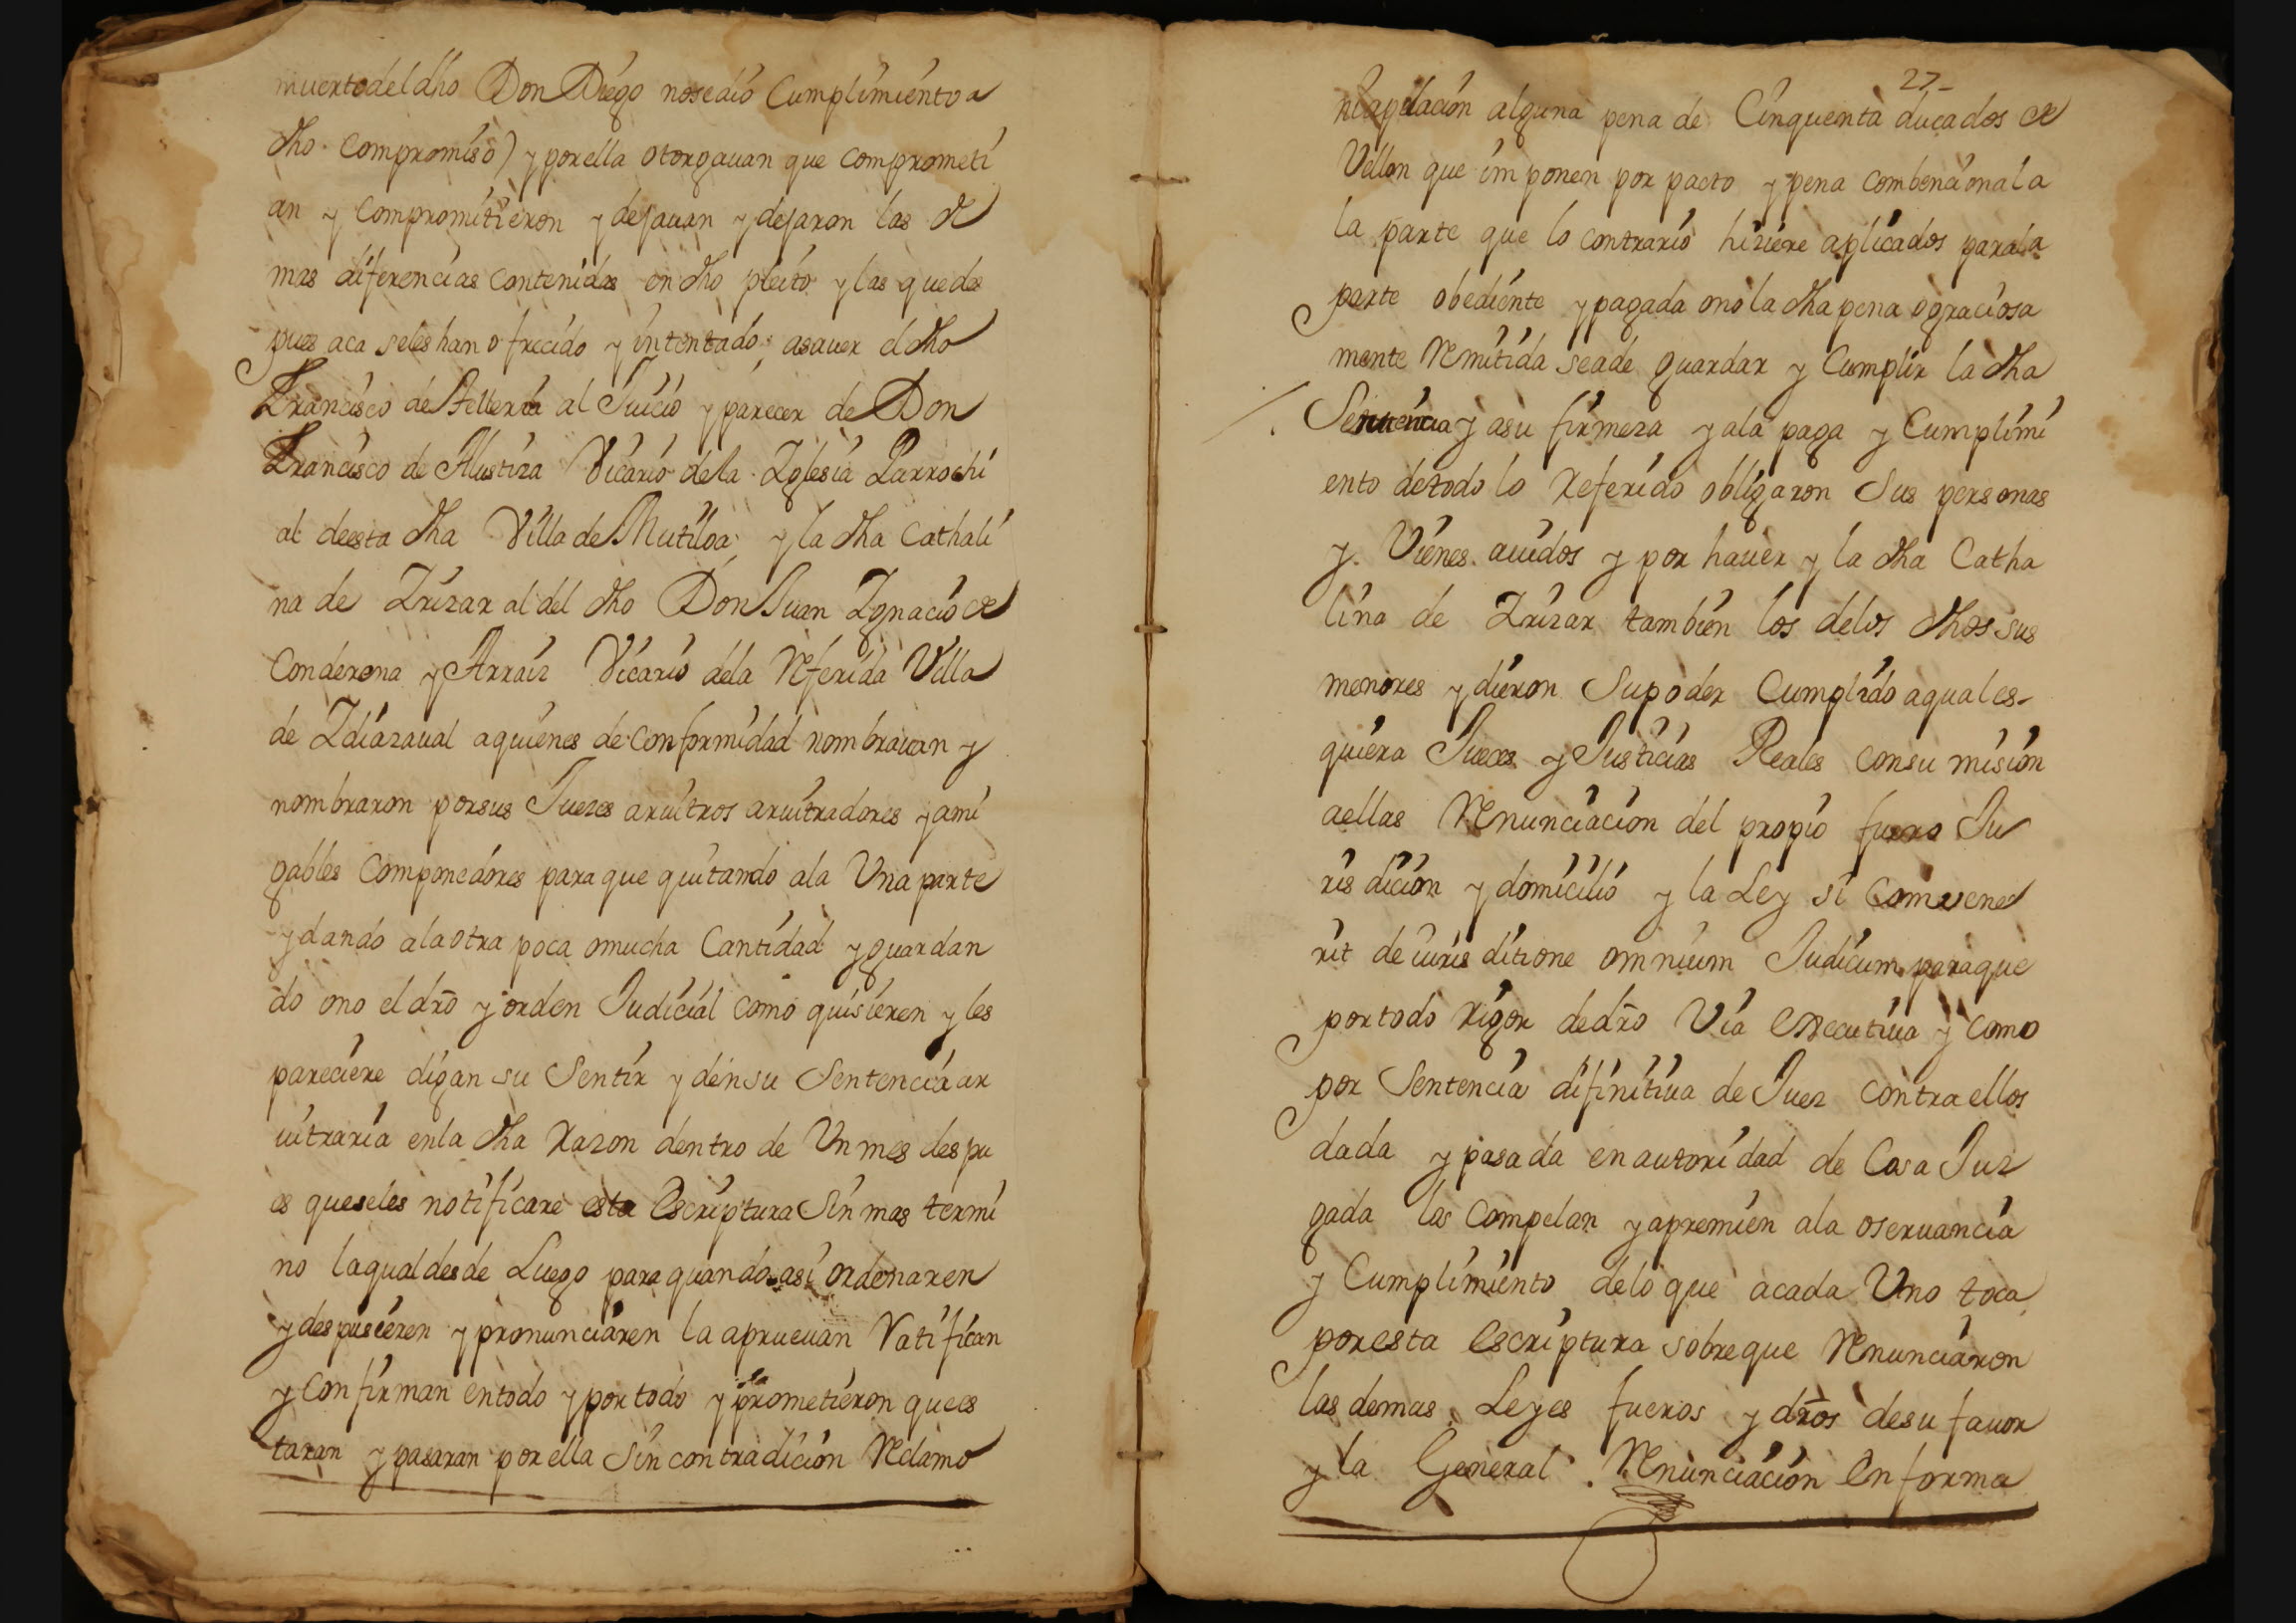 muerto del dho Don Diego nosedio Cumplimiento a
dho. compromiso) y por ella otorgauan que comprometi
an y compromitieron y dejauan y dejaron las de
mas diferencias contenidas en dho pleito y las que des
pues aca seles han ofrecido y intentado; asauer el dho
Francisco de Telleria al Juicio y parecer de Don
Francisco de Alustiza Vicario dela Iglesia Parrochi
al deesta dha Villa de Mutiloa; y la dha Cathali
na de Irizar al del dho Don Juan Ignacio de
Conderena y Arraiz Vicario dela Referida Villa
de Idiazaual aquienes de conformidad nombrauan y
nombraron porsus Juezes aruitros aruitradores y ami
gables Componedores para que quitando ala Una parte
y dando ala otra poca omucha Cantidad y guardan
do ono el dro y orden Judicial como quisieren y les
pareciere digan su Sentir y den su Sentencia ar
uitraria enla dha Razon dentro de Un mes despu
es queseles notificare esta Escriptura Sin mas termi
no laqual desde Luego para quando asi ordenaren
y despusieren y pronunciaren la aprueuan Ratifican
y confirman entodo y por todo y prometieron que es
taran y pasaran por ella Sin contradicion Reclamo
27
niapelacion alguna pena de Cinquenta ducados de
Vellon que imponen por pacto y pena combencional a
la parte que lo contrario hiziere aplicados parala
parte obediente y pagada onola dha pena ograciosa
mente Remitida seade guardar y Cumplir la dha
Sentencia y asu firmeza y ala paga y Cumplimi
ento detodo lo Referido obligaron Sus personas
y Vienes auidos y por hauer y la dha Catha
lina de Irizar tambien los delos dhos sus
menores y dieron Supoder Cumplido aquales-
quiera Jueces y Justicias Reales consu mision
aellas Renunciacion del propio fuero Ju
risdicion y domicilio y la Ley si comvene
rit de iurisditione omnium Judicum paraque
portodo Rigor dedro Via executiua y como
por Sentencia difinitiua de Juez contra ellos
dada y pasada en autoridad de Cosa Juz
gada las Compelan y apremien ala oseruancia
y Cumplimiento delo que acada Uno toca
por esta escriptura sobreque Renunciaron
las demas Leyes fueros y dros desu fauor
y la General Renunciacion en forma